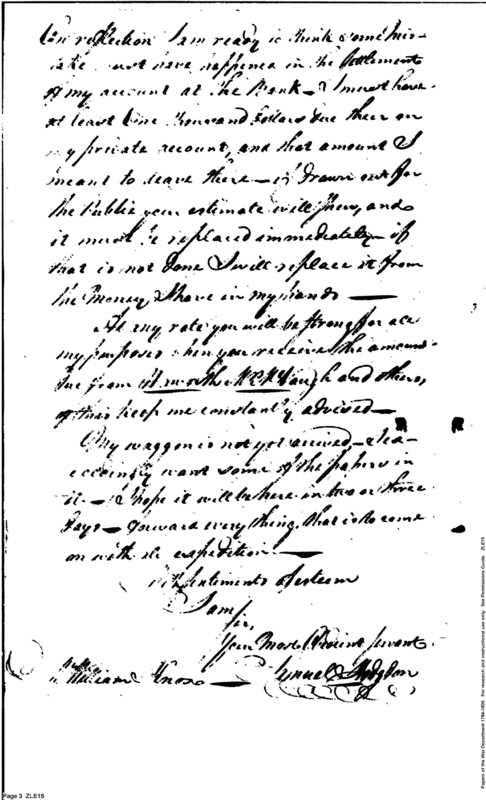 On reflection I am ready to think some mis-
take must have happened in the Settlement
of my account at the Bank – I must have
at least One Thousand Dollars due there on
my private account, and that amount I
meant to leave there – if drawn out for
the Public your estimate will shew, and
it must be replaced immediately – if
that is not done I will replace it from
the Money I have in my hands —
At any rate you will be strong for all
my purposes when you receive the amount
due from and others,
of this keep me constantly advised –
My waggon is not yet arrived – I ex-
ceedingly want some of the papers in
it – I hope it will be here in two or three
days – forward every thing that is to come
on with expedition —
With Sentiments of esteem
I am
Sir,
Your Most Obedient Servant
Samuel Hodgdon
William Knox —
Page 3 ZLE15
Papers of the War Department 1784-1800. For research and instructional use only. See Permissions Guide. ZLE15